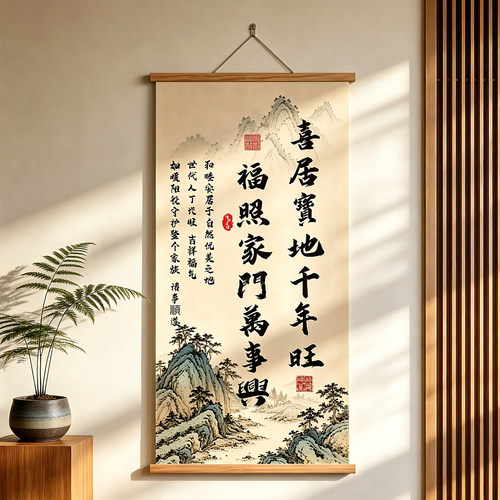 喜居寶地千年旺
福照家門萬事興
和睦安居于自然优美之地
世代人丁兴旺 吉祥福气
如暖阳般守护整个家族 诸事順遂